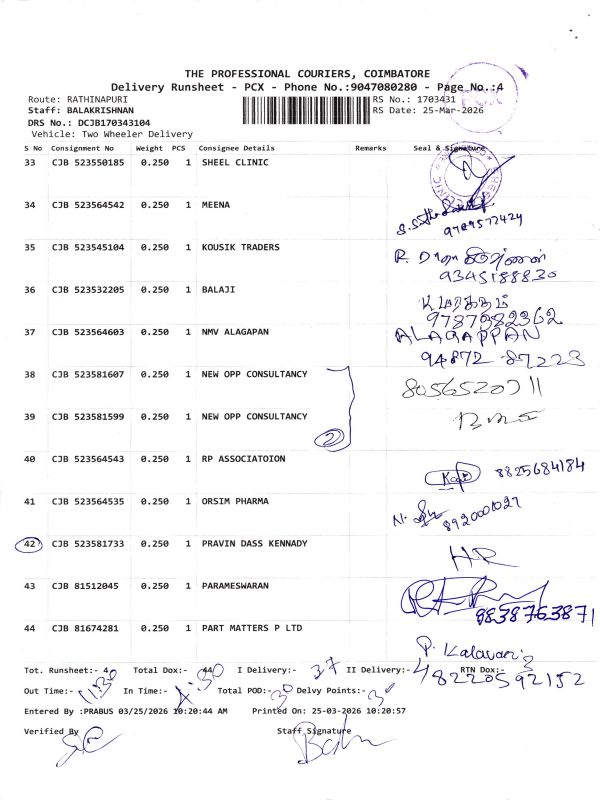 THE PROFESSIONAL COURIERS, COIMBATORE
Delivery Runsheet - PCX - Phone No.:9047080280 - Page No.:4
Route: RATHINAPURI
RS No.: 1703431
Staff: BALAKRISHNAN
RS Date: 25-Mar-2026
DRS No.: DCJB170343104
Vehicle: Two Wheeler Delivery
S No Consignment No Weight PCS Consignee Details Remarks Seal & Signature
33 CJB 523550185 0.250 1 SHEEL CLINIC
34 CJB 523564542 0.250 1 MEENA
9789572424
35 CJB 523545104 0.250 1 KOUSIK TRADERS
9345188830
36 CJB 523532205 0.250 1 BALAJI
9787982362
37 CJB 523564603 0.250 1 NMV ALAGAPAN ALAGAPPAN
94872 87223
38 CJB 523581607 0.250 1 NEW OPP CONSULTANCY 8056520711
39 CJB 523581599 0.250 1 NEW OPP CONSULTANCY
2
40 CJB 523564543 0.250 1 RP ASSOCIATOION 8825684184
41 CJB 523564535 0.250 1 ORSIM PHARMA 8920001027
42 CJB 523581733 0.250 1 PRAVIN DASS KENNADY HR
43 CJB 81512045 0.250 1 PARAMESWARAN
9838763871
44 CJB 81674281 0.250 1 PART MATTERS P LTD
P. Kalavani
Tot. Runsheet:- 4 Total Dox:- 44 I Delivery:- 37 II Delivery:- RTN Dox:-
48220592152
Out Time:- 11:30 In Time:- 4.30 Total POD:- 30 Delvy Points:- 3
Entered By :PRABUS 03/25/2026 10:20:44 AM Printed On: 25-03-2026 10:20:57
Verified By Staff Signature